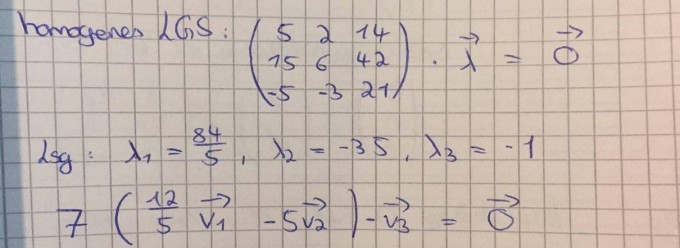 homogenes LGS: \begin{pmatrix} 5 & 2 & 14 \\ 15 & 6 & 42 \\ -5 & -3 & 21 \end{pmatrix} \cdot \vec{\lambda} = \vec{0}
Lsg: λ₁ = 84/5, λ₂ = -35, λ₃ = -1
7 ( 12/5 \vec{v_1} - 5\vec{v_2} ) - \vec{v_3} = \vec{0}